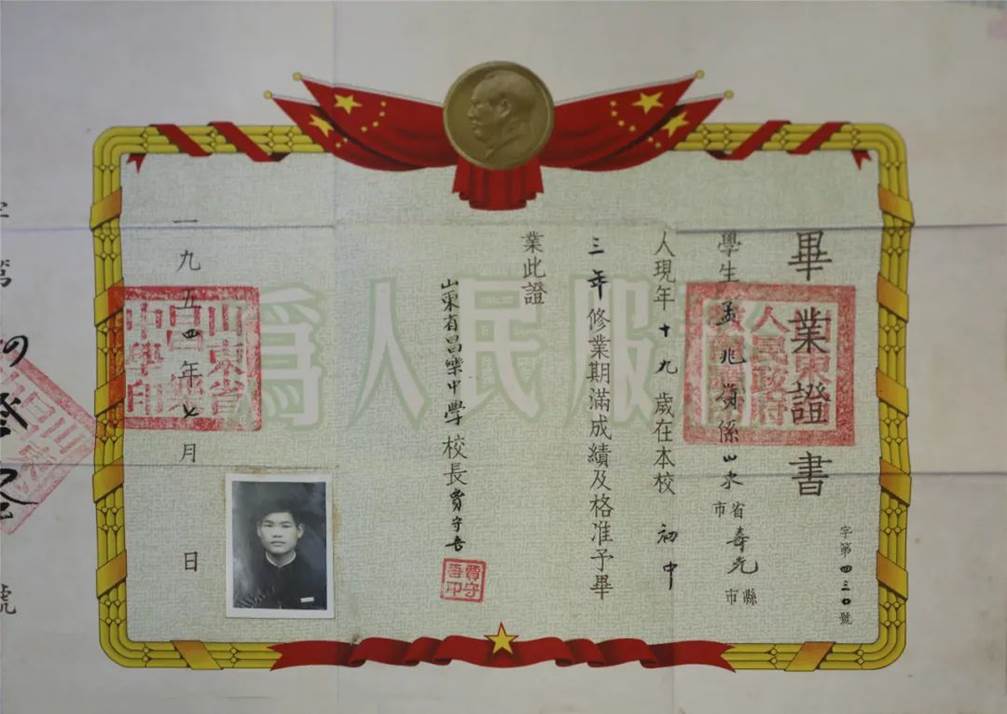 畢業證書
字第四三〇號
學生孟兆 係山東省市壽光縣市
人現年十九歲在本校初中
三年修業期滿成績及格准予畢
業此證
山東省昌樂中學校長賈守
一九五四年七月 日
為人民服
山東省昌樂中學印
賈守 印
字第
號